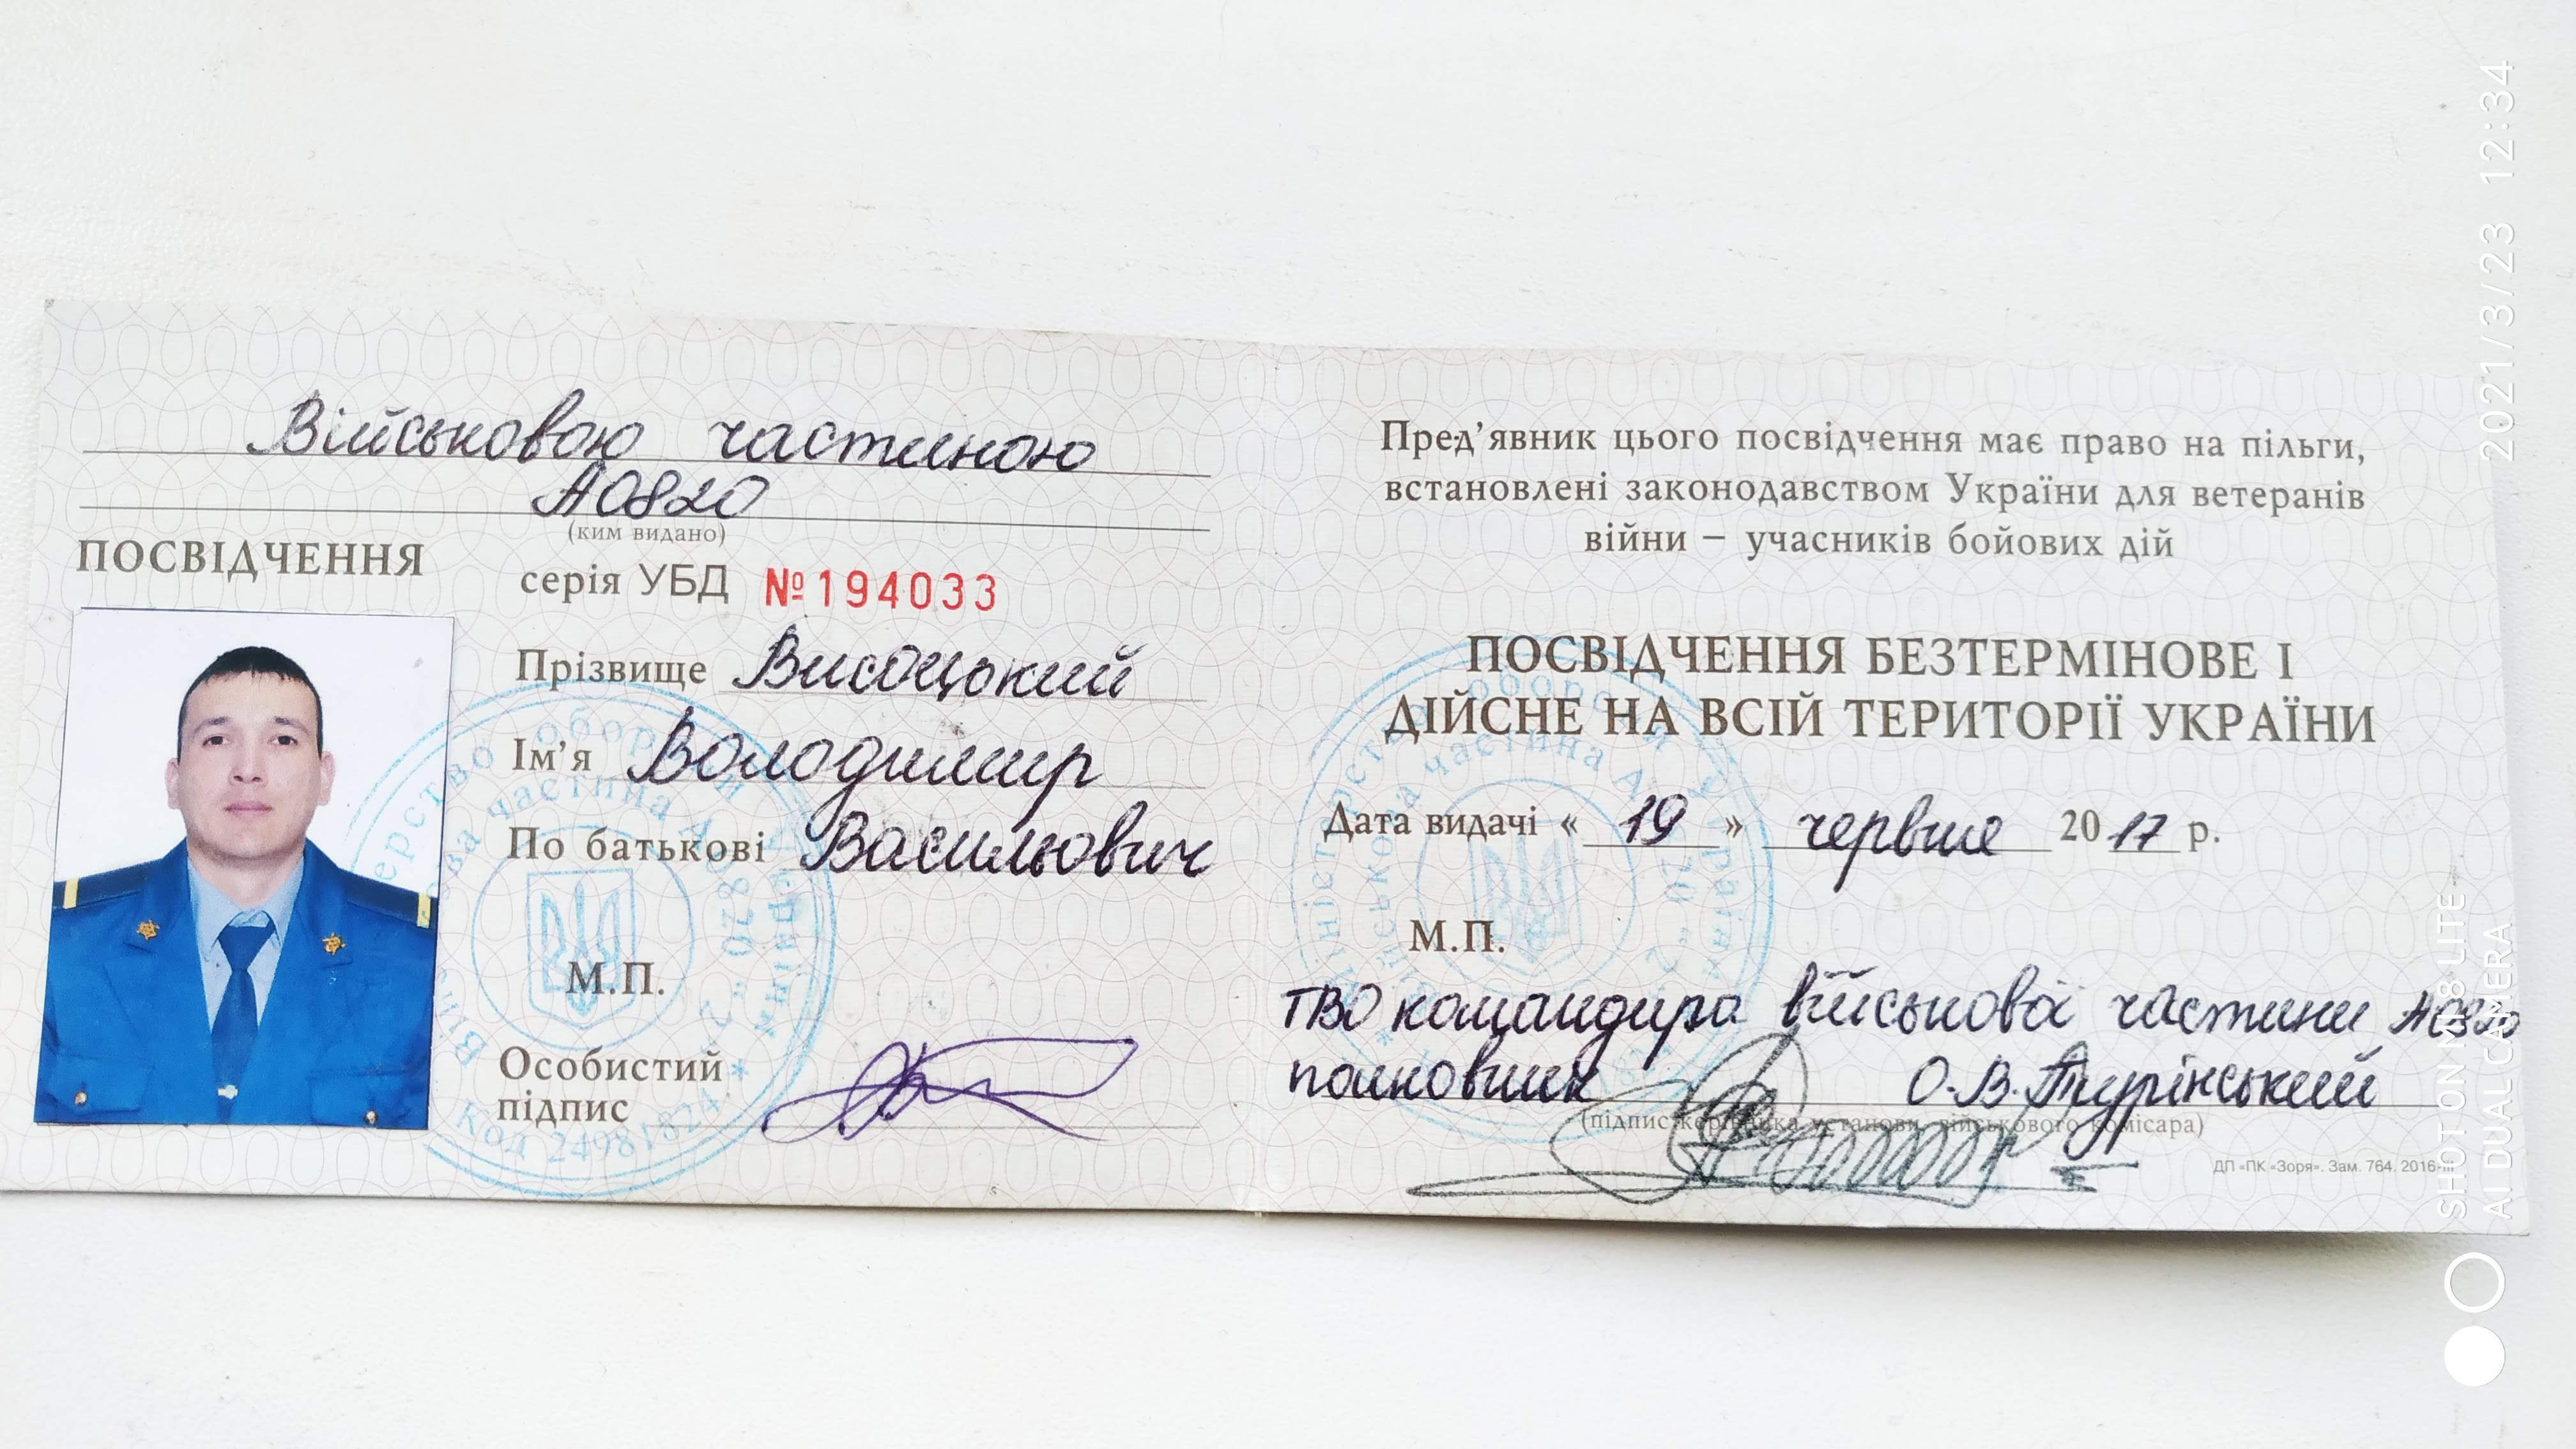 Військовою частиною
А0820
(ким видано)
ПОСВІДЧЕННЯ
серія УБД №194033
Прізвище Висоцький
Ім'я Володимир
По батькові Васильович
М.П.
Особистий
підпис
Код 24981824
Пред'явник цього посвідчення має право на пільги,
встановлені законодавством України для ветеранів
війни – учасників бойових дій
ПОСВІДЧЕННЯ БЕЗТЕРМІНОВЕ І
ДІЙСНЕ НА ВСІЙ ТЕРИТОРІЇ УКРАЇНИ
Дата видачі « 19 » червня 2017 р.
М.П.
ТВО командира військової частини А0820
полковник О.В. Турінський
(підпис керівника установи, військового комісара)
ДП «ПК «Зоря». Зам. 764. 2016-III
2021/3/23 12:34
SHOT ON MI 8 LITE
AI DUAL CAMERA